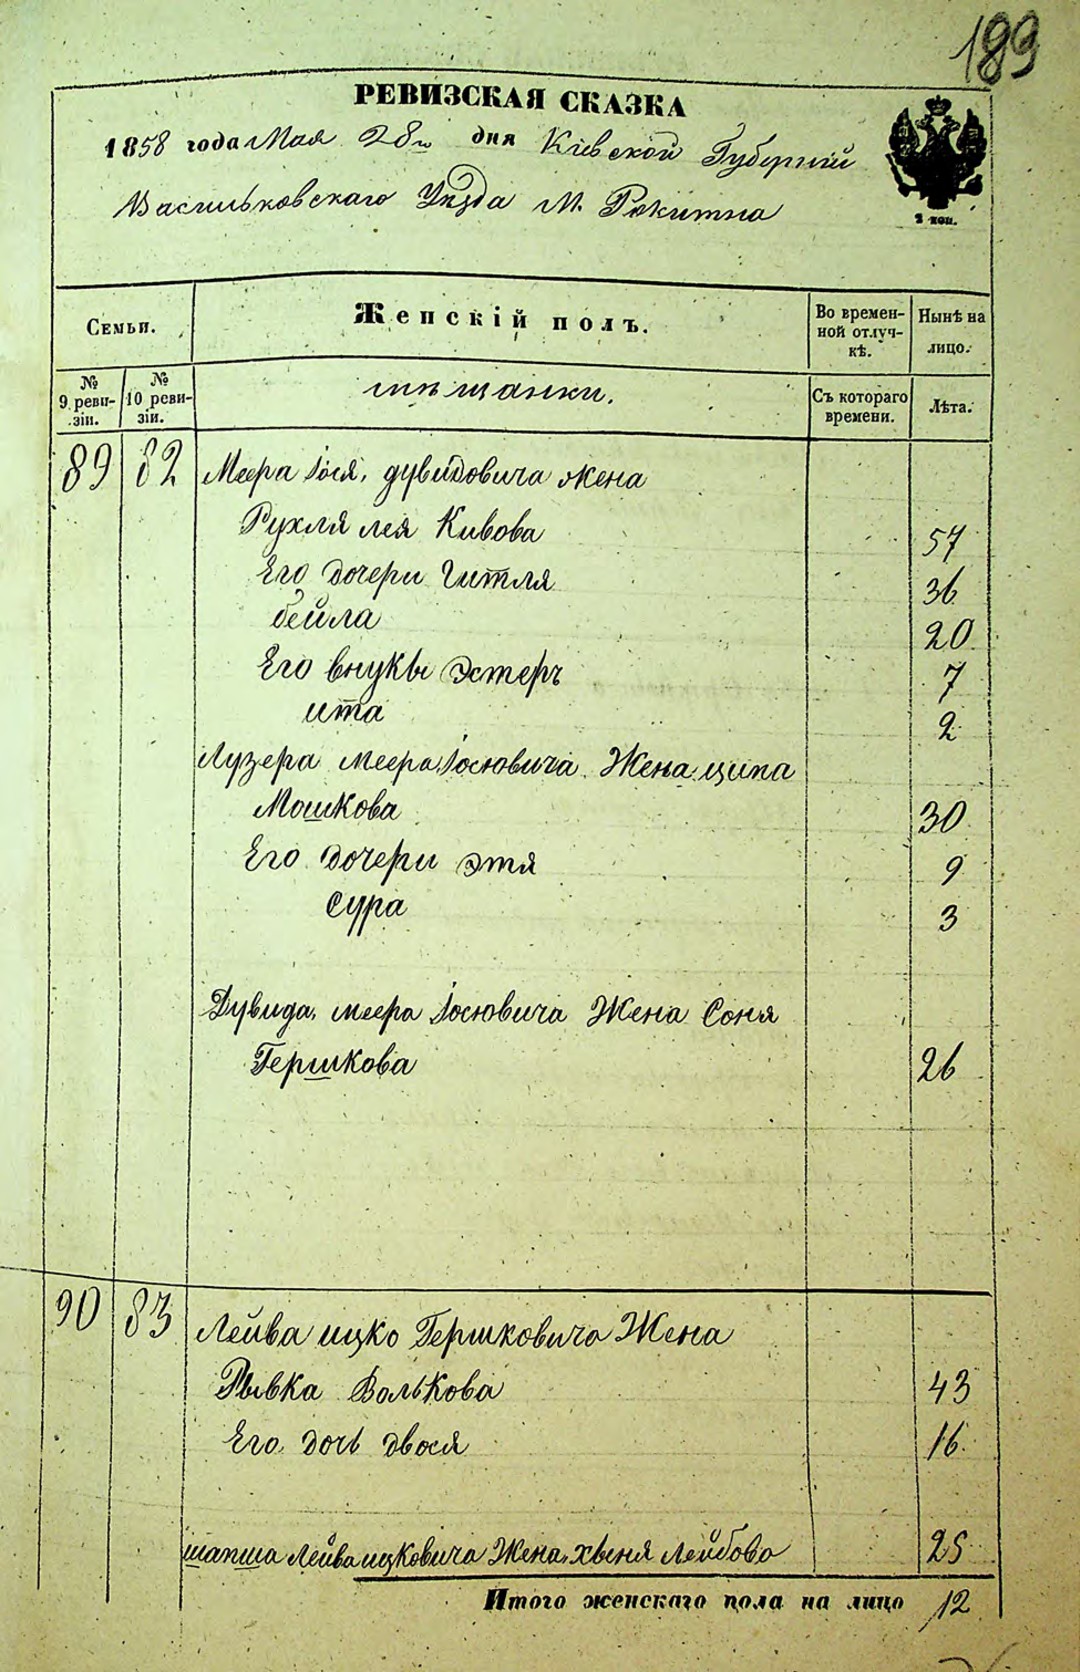 189
РЕВИЗСКАЯ СКАЗКА
1858 года Мая 28го дня Кіевской Губерніи
Васильковскаго Уѣзда М. Рокитна
2 коп.
Семьи.
Женскій полъ.
Во времен-
ной отлуч-
кѣ.
Нынѣ на
лицо.
№
9 реви-
зіи.
№
10 реви-
зіи.
мѣщанки.
Съ котораго
времени.
Лѣта.
89 82 Меера Іося дувидовича жена
Рухля лея Кивова 57
Его дочери Гитля 36
бейла 20
Его внуки Эстеръ 7
ита 2
Лузера меера Іосіовича Жена ципа
Мошкова 30
Его дочери этя 9
Сура 3
Дувида меера Іосіовича Жена Соня
Гершкова 26
90 83 Лейва ицко Гершковича Жена
Рывка Волькова 43
Его дочь двося 16
шапша Лейваицковича Жена хвеня Лейбова 25
Итого женскаго пола на лицо 12